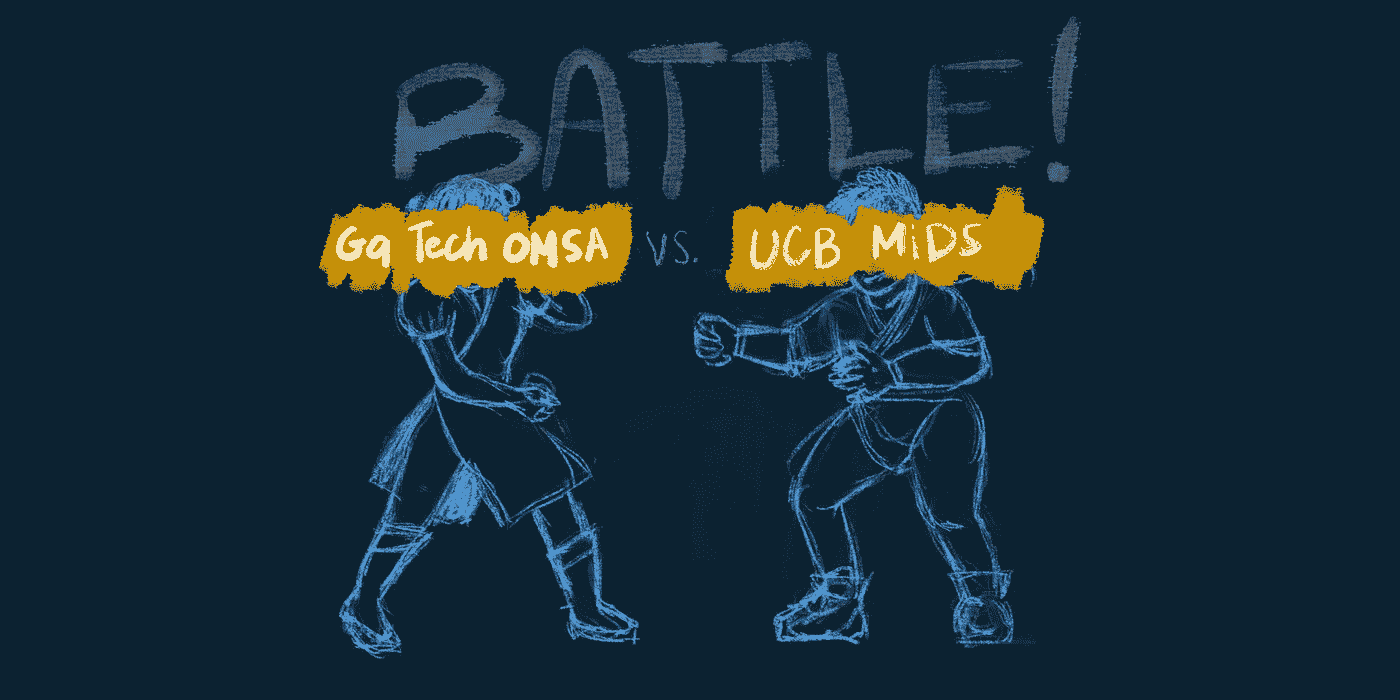 BATTLE!
Ga Tech OMSA vs. UCB MiDS